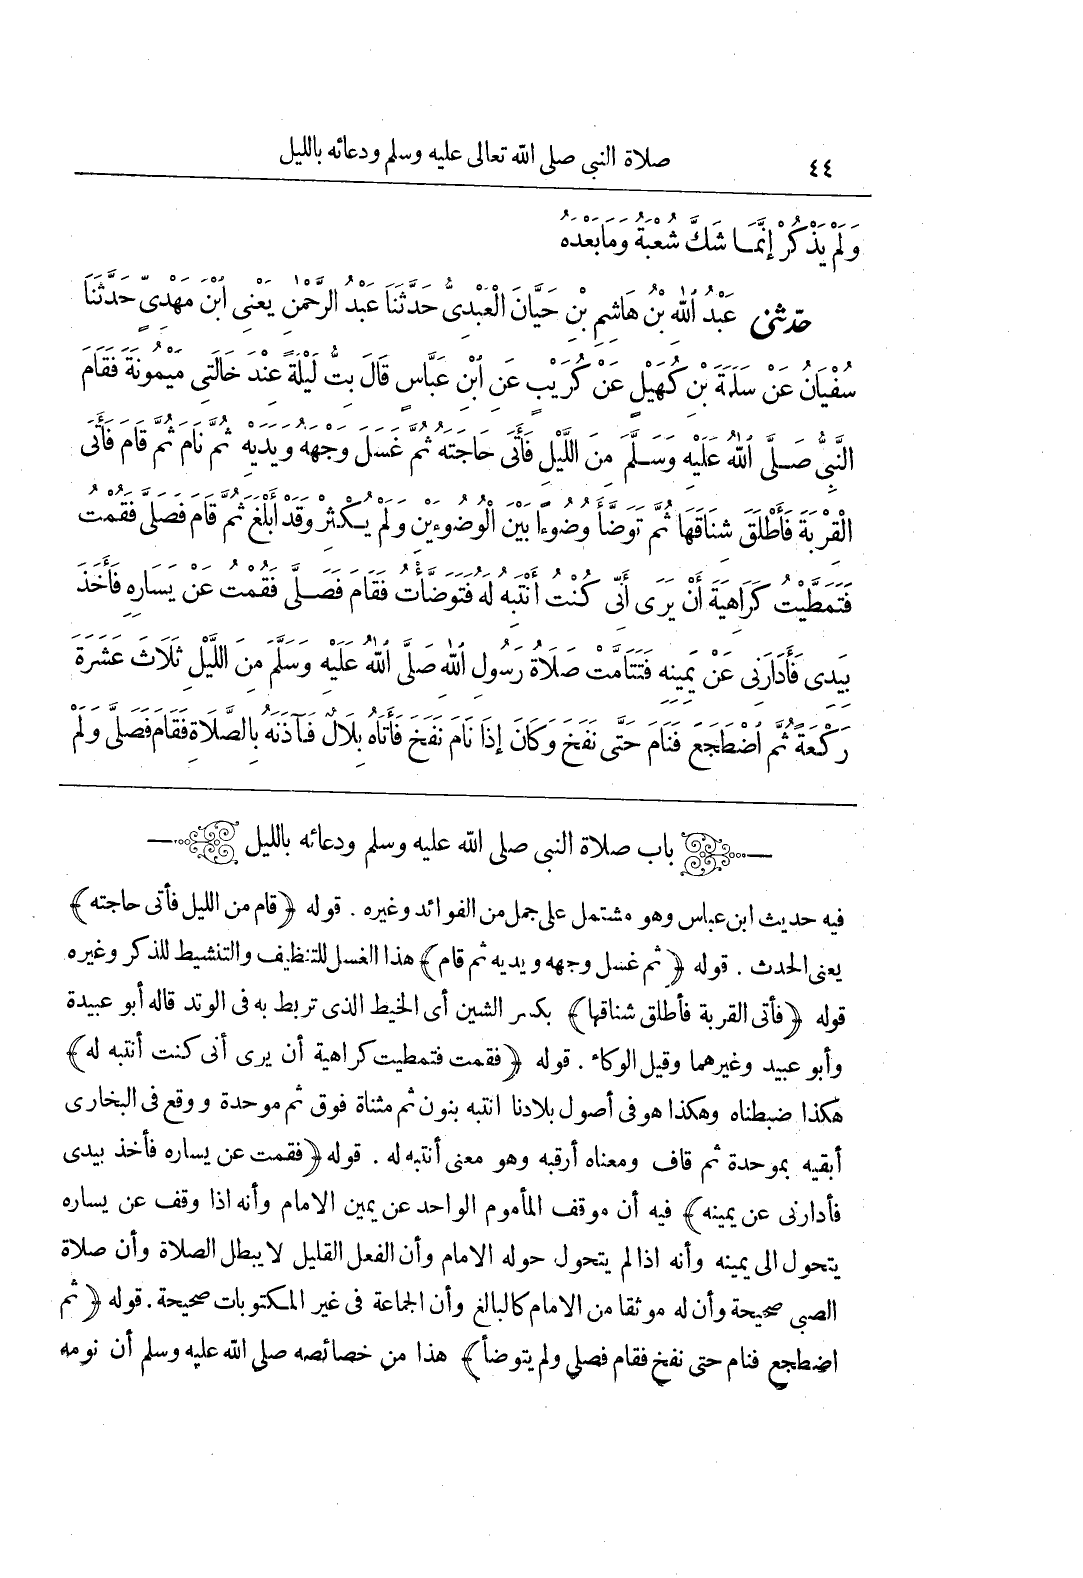 ٤٤
صلاة النبى صلى الله تعالى عليه وسلم ودعائه بالليل
وَلَمْ يَذْكُرْ إِنَّمَا شَكَّ شُعْبَةُ وَمَا بَعْدَهُ
حَدَّثَنِى عَبْدُ اللهِ بْنُ هَاشِمِ بْنِ حَيَّانَ الْعَبْدِىُّ حَدَّثَنَا عَبْدُ الرَّحْمٰنِ يَعْنِى ابْنَ مَهْدِىٍّ حَدَّثَنَا
سُفْيَانُ عَنْ سَلَمَةَ بْنِ كُهَيْلٍ عَنْ كُرَيْبٍ عَنِ ابْنِ عَبَّاسٍ قَالَ بِتُّ لَيْلَةً عِنْدَ خَالَتِى مَيْمُونَةَ فَقَامَ
النَّبِىُّ صَلَّى اللهُ عَلَيْهِ وَسَلَّمَ مِنَ اللَّيْلِ فَأَتَى حَاجَتَهُ ثُمَّ غَسَلَ وَجْهَهُ وَيَدَيْهِ ثُمَّ نَامَ ثُمَّ قَامَ فَأَتَى
الْقِرْبَةَ فَأَطْلَقَ شِنَاقَهَا ثُمَّ تَوَضَّأَ وُضُوءًا بَيْنَ الْوُضُوءَيْنِ وَلَمْ يُكْثِرْ وَقَدْ أَبْلَغَ ثُمَّ قَامَ فَصَلَّى فَقُمْتُ
فَتَمَطَّيْتُ كَرَاهِيَةَ أَنْ يَرَى أَنِّى كُنْتُ أَنْتَبِهُ لَهُ فَتَوَضَّأْتُ فَقَامَ فَصَلَّى فَقُمْتُ عَنْ يَسَارِهِ فَأَخَذَ
بِيَدِى فَأَدَارَنِى عَنْ يَمِينِهِ فَتَتَامَّتْ صَلَاةُ رَسُولِ اللهِ صَلَّى اللهُ عَلَيْهِ وَسَلَّمَ مِنَ اللَّيْلِ ثَلَاثَ عَشْرَةَ
رَكْعَةً ثُمَّ اضْطَجَعَ فَنَامَ حَتَّى نَفَخَ وَكَانَ إِذَا نَامَ نَفَخَ فَأَتَاهُ بِلَالٌ فَآذَنَهُ بِالصَّلَاةِ فَقَامَ فَصَلَّى وَلَمْ
باب صلاة النبى صلى الله عليه وسلم ودعائه بالليل
فيه حديث ابن عباس وهو مشتمل على جمل من الفوائد وغيره . قوله ﴿قام من الليل فأتى حاجته﴾
يعنى الحدث . قوله ﴿ثم غسل وجهه ويديه ثم قام﴾ هذا الغسل للتنظيف والتنشيط للذكر وغيره
قوله ﴿فأتى القربة فأطلق شناقها﴾ بكسر الشين أى الخيط الذى تربط به فى الوتد قاله أبو عبيدة
وأبو عبيد وغيرهما وقيل الوكاء . قوله ﴿فقمت فتمطيت كراهية أن يرى أنى كنت أنتبه له﴾
هكذا ضبطناه وهكذا هو فى أصول بلادنا انتبه بنون ثم مثناة فوق ثم موحدة ووقع فى البخارى
أبقيه بموحدة ثم قاف ومعناه أرقبه وهو معنى أنتبه له . قوله ﴿فقمت عن يساره فأخذ بيدى
فأدارنى عن يمينه﴾ فيه أن موقف المأموم الواحد عن يمين الامام وأنه اذا وقف عن يساره
يتحول الى يمينه وأنه اذا لم يتحول حوله الامام وأن الفعل القليل لا يبطل الصلاة وأن صلاة
الصبى صحيحة وأن له موقفا من الامام كالبالغ وأن الجماعة فى غير المكتوبات صحيحة . قوله ﴿ثم
اضطجع فنام حتى نفخ فقام فصلى ولم يتوضأ﴾ هذا من خصائصه صلى الله عليه وسلم أن نومه